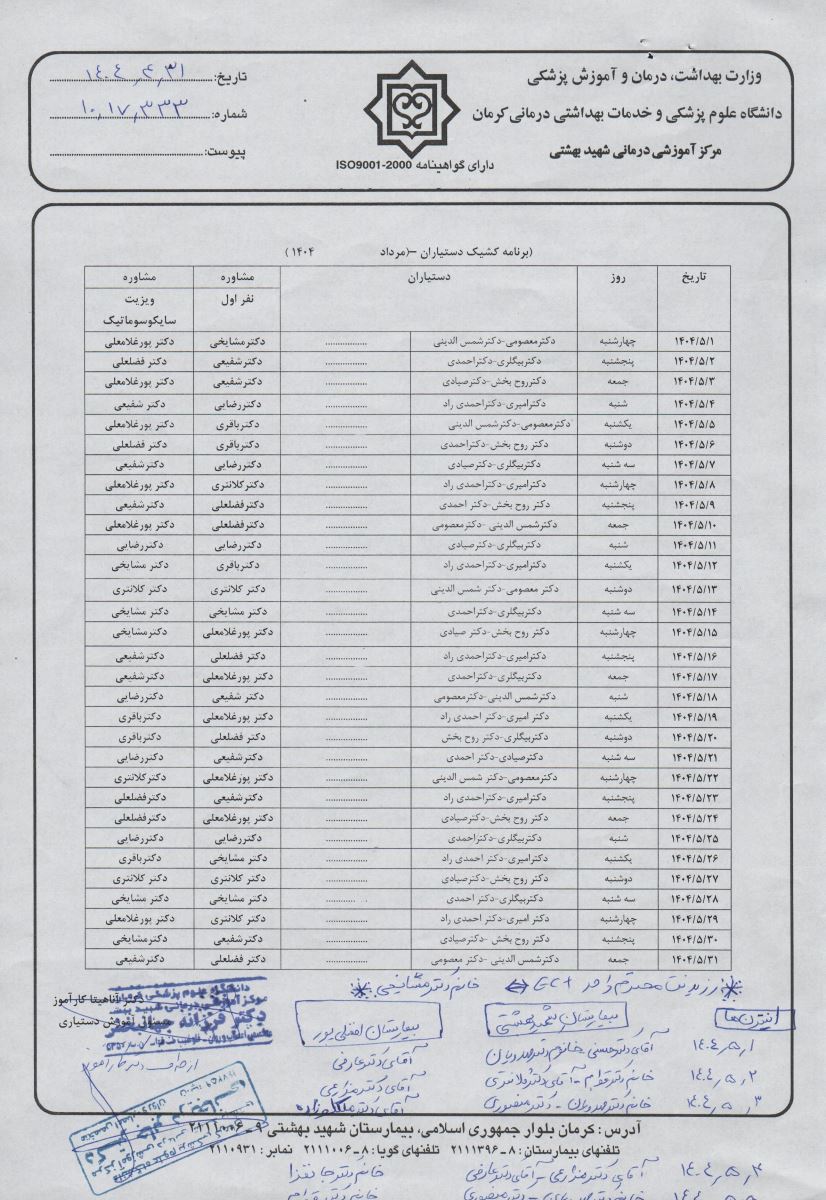 وزارت بهداشت، درمان و آموزش پزشکی
دانشگاه علوم پزشکی و خدمات بهداشتی درمانی کرمان
مرکز آموزشی درمانی شهید بهشتی
دارای گواهینامه ISO9001-2000
تاریخ: ۱۴۰۴٫۴٫۳۱
شماره: ۱۰٫۱۷٫۳۳۳
پیوست:
(برنامه کشیک دستیاران –(مرداد ۱۴۰۴ )
تاریخ روز دستیاران مشاوره نفر اول مشاوره ویزیت سایکوسوماتیک
۱۴۰۴/۵/۱ چهارشنبه دکترمعصومی-دکترشمس الدینی ................. دکترمشایخی دکتر پورغلامعلی
۱۴۰۴/۵/۲ پنجشنبه دکتربیگلری-دکتراحمدی ................. دکترشفیعی دکتر فضلعلی
۱۴۰۴/۵/۳ جمعه دکترروح بخش-دکترصیادی ................. دکترشفیعی دکتر پورغلامعلی
۱۴۰۴/۵/۴ شنبه دکترامیری-دکتراحمدی راد ................. دکتررضایی دکتر شفیعی
۱۴۰۴/۵/۵ یکشنبه دکترمعصومی-دکترشمس الدینی ................. دکترباقری دکتر پورغلامعلی
۱۴۰۴/۵/۶ دوشنبه دکتر روح بخش-دکتراحمدی ................. دکترباقری دکتر فضلعلی
۱۴۰۴/۵/۷ سه شنبه دکتربیگلری-دکترصیادی ................. دکتررضایی دکترشفیعی
۱۴۰۴/۵/۸ چهارشنبه دکترامیری-دکتراحمدی راد ................. دکترکلانتری دکتر پورغلامعلی
۱۴۰۴/۵/۹ پنجشنبه دکتر روح بخش-دکتر احمدی ................. دکترفضلعلی دکترشفیعی
۱۴۰۴/۵/۱۰ جمعه دکترشمس الدینی -دکترمعصومی ................. دکترفضلعلی دکتر پورغلامعلی
۱۴۰۴/۵/۱۱ شنبه دکتربیگلری-دکترصیادی ................. دکتررضایی دکتررضایی
۱۴۰۴/۵/۱۲ یکشنبه دکترامیری-دکتراحمدی راد ................. دکترباقری دکتر مشایخی
۱۴۰۴/۵/۱۳ دوشنبه دکتر معصومی-دکتر شمس الدینی ................. دکتر کلانتری دکتر کلانتری
۱۴۰۴/۵/۱۴ سه شنبه دکتربیگلری-دکتراحمدی ................. دکتر مشایخی دکتر مشایخی
۱۴۰۴/۵/۱۵ چهارشنبه دکتر روح بخش-دکتر صیادی ................. دکتر پورغلامعلی دکترمشایخی
۱۴۰۴/۵/۱۶ پنجشنبه دکترامیری-دکتراحمدی راد ................. دکتر فضلعلی دکترشفیعی
۱۴۰۴/۵/۱۷ جمعه دکتربیگلری-دکتراحمدی ................. دکتر پورغلامعلی دکترشفیعی
۱۴۰۴/۵/۱۸ شنبه دکترشمس الدینی-دکترمعصومی ................. دکتر شفیعی دکتررضایی
۱۴۰۴/۵/۱۹ یکشنبه دکتر امیری-دکتر احمدی راد ................. دکتر پورغلامعلی دکترباقری
۱۴۰۴/۵/۲۰ دوشنبه دکتربیگلری-دکتر روح بخش ................. دکتر فضلعلی دکترباقری
۱۴۰۴/۵/۲۱ سه شنبه دکترصیادی-دکتر احمدی ................. دکترشفیعی دکتررضایی
۱۴۰۴/۵/۲۲ چهارشنبه دکترمعصومی-دکتر شمس الدینی ................. دکتر پورغلامعلی دکترکلانتری
۱۴۰۴/۵/۲۳ پنجشنبه دکترامیری-دکتراحمدی راد ................. دکترشفیعی دکترفضلعلی
۱۴۰۴/۵/۲۴ جمعه دکتر روح بخش-دکترصیادی ................. دکتر پورغلامعلی دکترفضلعلی
۱۴۰۴/۵/۲۵ شنبه دکتربیگلری-دکتراحمدی ................. دکتررضایی دکتررضایی
۱۴۰۴/۵/۲۶ یکشنبه دکترامیری-دکتر احمدی راد ................. دکتر مشایخی دکترباقری
۱۴۰۴/۵/۲۷ دوشنبه دکتر روح بخش-دکترصیادی ................. دکتر کلانتری دکتر کلانتری
۱۴۰۴/۵/۲۸ سه شنبه دکتربیگلری-دکتر احمدی ................. دکتر مشایخی دکتر مشایخی
۱۴۰۴/۵/۲۹ چهارشنبه دکتر امیری-دکتر احمدی راد ................. دکتر کلانتری دکتر پورغلامعلی
۱۴۰۴/۵/۳۰ پنجشنبه دکتر روح بخش -دکترصیادی ................. دکترشفیعی دکترمشایخی
۱۴۰۴/۵/۳۱ جمعه دکترشمس الدینی -دکتر معصومی ................. دکتر فضلعلی دکترشفیعی
رزیدنت محترم واحد ECT خانم دکتر مشایخی
دکتر آناهیتا کارآموز
مسئول آموزش دستیاری
انترن‌ها بیمارستان شهید بهشتی بیمارستان افضلی پور
۱۴۰۴٫۵٫۱ آقای دکتر حسنی خانم دکتر آقای دکتر عارفی
۱۴۰۴٫۵٫۲ خانم دکتر - آقای دکتر کلانتری آقای دکتر
۱۴۰۴٫۵٫۳ خانم دکتر - دکتر منصوری آقای دکتر
آدرس: کرمان بلوار جمهوری اسلامی، بیمارستان شهید بهشتی ۹-۲۱۱۱۰۰۶
تلفنهای بیمارستان: ۸-۲۱۱۱۳۹۶ تلفنهای گویا: ۸-۲۱۱۱۰۰۶ نمابر: ۲۱۱۰۹۳۱
۱۴۰۴٫۵٫۴ آقای دکتر - آقای دکتر عارفی خانم دکتر